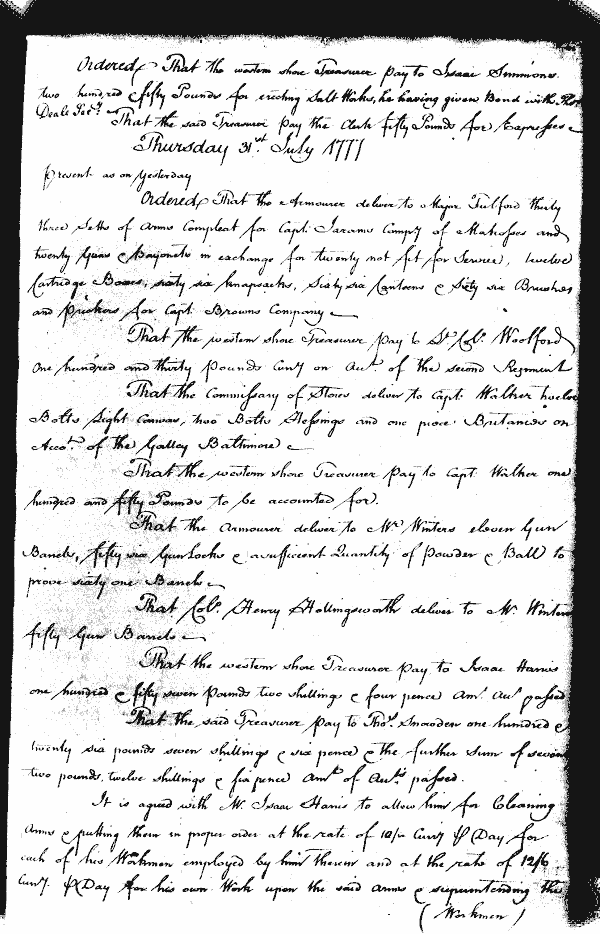 Ordered, That the western shore Treasurer pay to Isaac Simmons
two hundred & fifty Pounds for erecting Salt Works, he having given Bond with
Deale Secy. That the said Treasurer pay the Clerk fifty Pounds for Expresses
Thursday 31st July 1777
Present as on yesterday
Ordered, That the Armourer deliver to Major Fulford thirty
three Setts of Arms Compleat for Capt. Compy of Matrosses and
twenty Guns & Bayonets in exchange for twenty not fit for Service, twelve
Cartridge Boxes, sixty six knapsacks, Sixty six Canteens & Sixty six Brushes
and prickers for Capt. Browns Company
That the western shore Treasurer pay to Lt. Col. Woolford
One hundred and thirty Pounds Curry on Acct. of the second Regiment
That the Commissary of Stores deliver to Capt. Walker twelve
Bolts Light Canvas, two Bolts and one piece Britanies on
Acco. of the Galley Baltimore
That the western shore Treasurer pay to Capt. Walker one
hundred and fifty Pounds to be accounted for.
That the Armourer deliver to Mr. Winters eleven Gun
Barrels, fifty six Gun Locks & a sufficient Quantity of Powder & Ball to
prove sixty one Barrels
That Col. Henry Hollingsworth deliver to Mr. Winters
fifty Gun Barrels
That the western shore Treasurer pay to Isaac Harris
one hundred & fifty seven pounds two shillings & four pence Amt. Acct. passed
That the said Treasurer pay to Thos. Snowden one hundred &
twenty six pounds seven shillings & six pence & the further Sum of seven
two pounds, twelve shillings & six pence Amt. of Accts. passed.
It is agreed with Mr. Isaac Harris to allow him for Cleaning
Arms & putting them in proper order at the rate of 10/ Curry ⅌ Day for
each of his Workmen employed by him therein and at the rate of 12/6
Curry. ⅌ Day for his own Work upon the said Arms & superintending the
(Workmen)